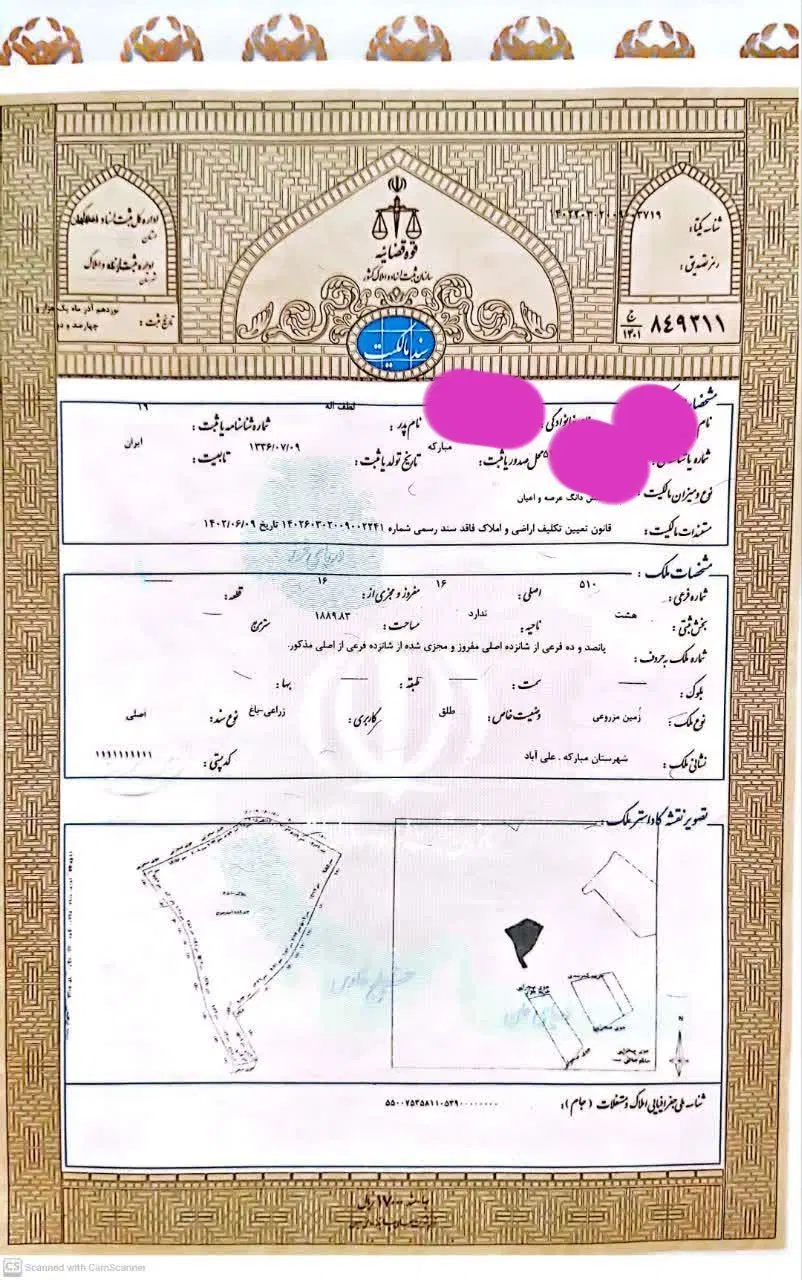 شناسه یکتا:
رمز تصدیق:
ج
۱۴۰۱
۸۴۹۳۱۱
قوه قضائیه
سازمان ثبت اسناد و املاک کشور
سند مالکیت
اداره کل ثبت اسناد و املاک
استان
اداره ثبت اسناد و املاک
شهرستان
تاریخ ثبت : نوزدهم آذر ماه یک هزار و
چهارصد و دو
مشخصات
نام پدر : لطف اله شماره شناسنامه یا ثبت : ۱۹
محل صدور یا ثبت : مبارکه تاریخ تولد یا ثبت : ۱۳۳۶/۰۷/۰۹ تابعیت : ایران
نوع و میزان مالکیت : شش دانگ عرصه و اعیان
مستندات مالکیت : قانون تعیین تکلیف اراضی و املاک فاقد سند رسمی شماره ۱۴۰۲۶۰۳۰۲۰۰۹۰۰۲۲۴۱ تاریخ ۱۴۰۲/۰۶/۰۹
مشخصات ملک :
شماره فرعی : ۵۱۰ اصلی : ۱۶ مفروز و مجزی از : ۱۶ قطعه :
بخش ثبتی : هشت ناحیه : ندارد مساحت : ۱۸۸۹.۸۳ مترمربع
شماره ملک به حروف : پانصد و ده فرعی از شانزده اصلی مفروز و مجزی شده از شانزده فرعی از اصلی مذکور.
بلوک : سمت : طبقه : بها :
نوع ملک : زمین مزروعی وضعیت خاص : طلق کاربری : زراعی-باغ نوع سند : اصلی
نشانی ملک : شهرستان مبارکه . علی آباد کدپستی : ۱۱۱۱۱۱۱۱۱۱
تصویر نقشه کاداستر ملک :
N
شناسه ملی جغرافیایی املاک و مستغلات (جام) : ۵۵۰۰۷۵۳۵۸۱۱۰۵۳۹۰۰۰۰۰۰۰۰
بها ۱۷۰۰۰ ریال
CS Scanned with CamScanner